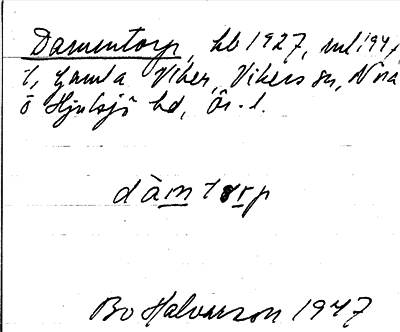 Damentorp, hb 1927, ml 1947
t, Gamla Viker, Vikers sn, Nora
o Hjulsjö bd, Ör. l.
dàmtorp
Bo Halvarson 1947